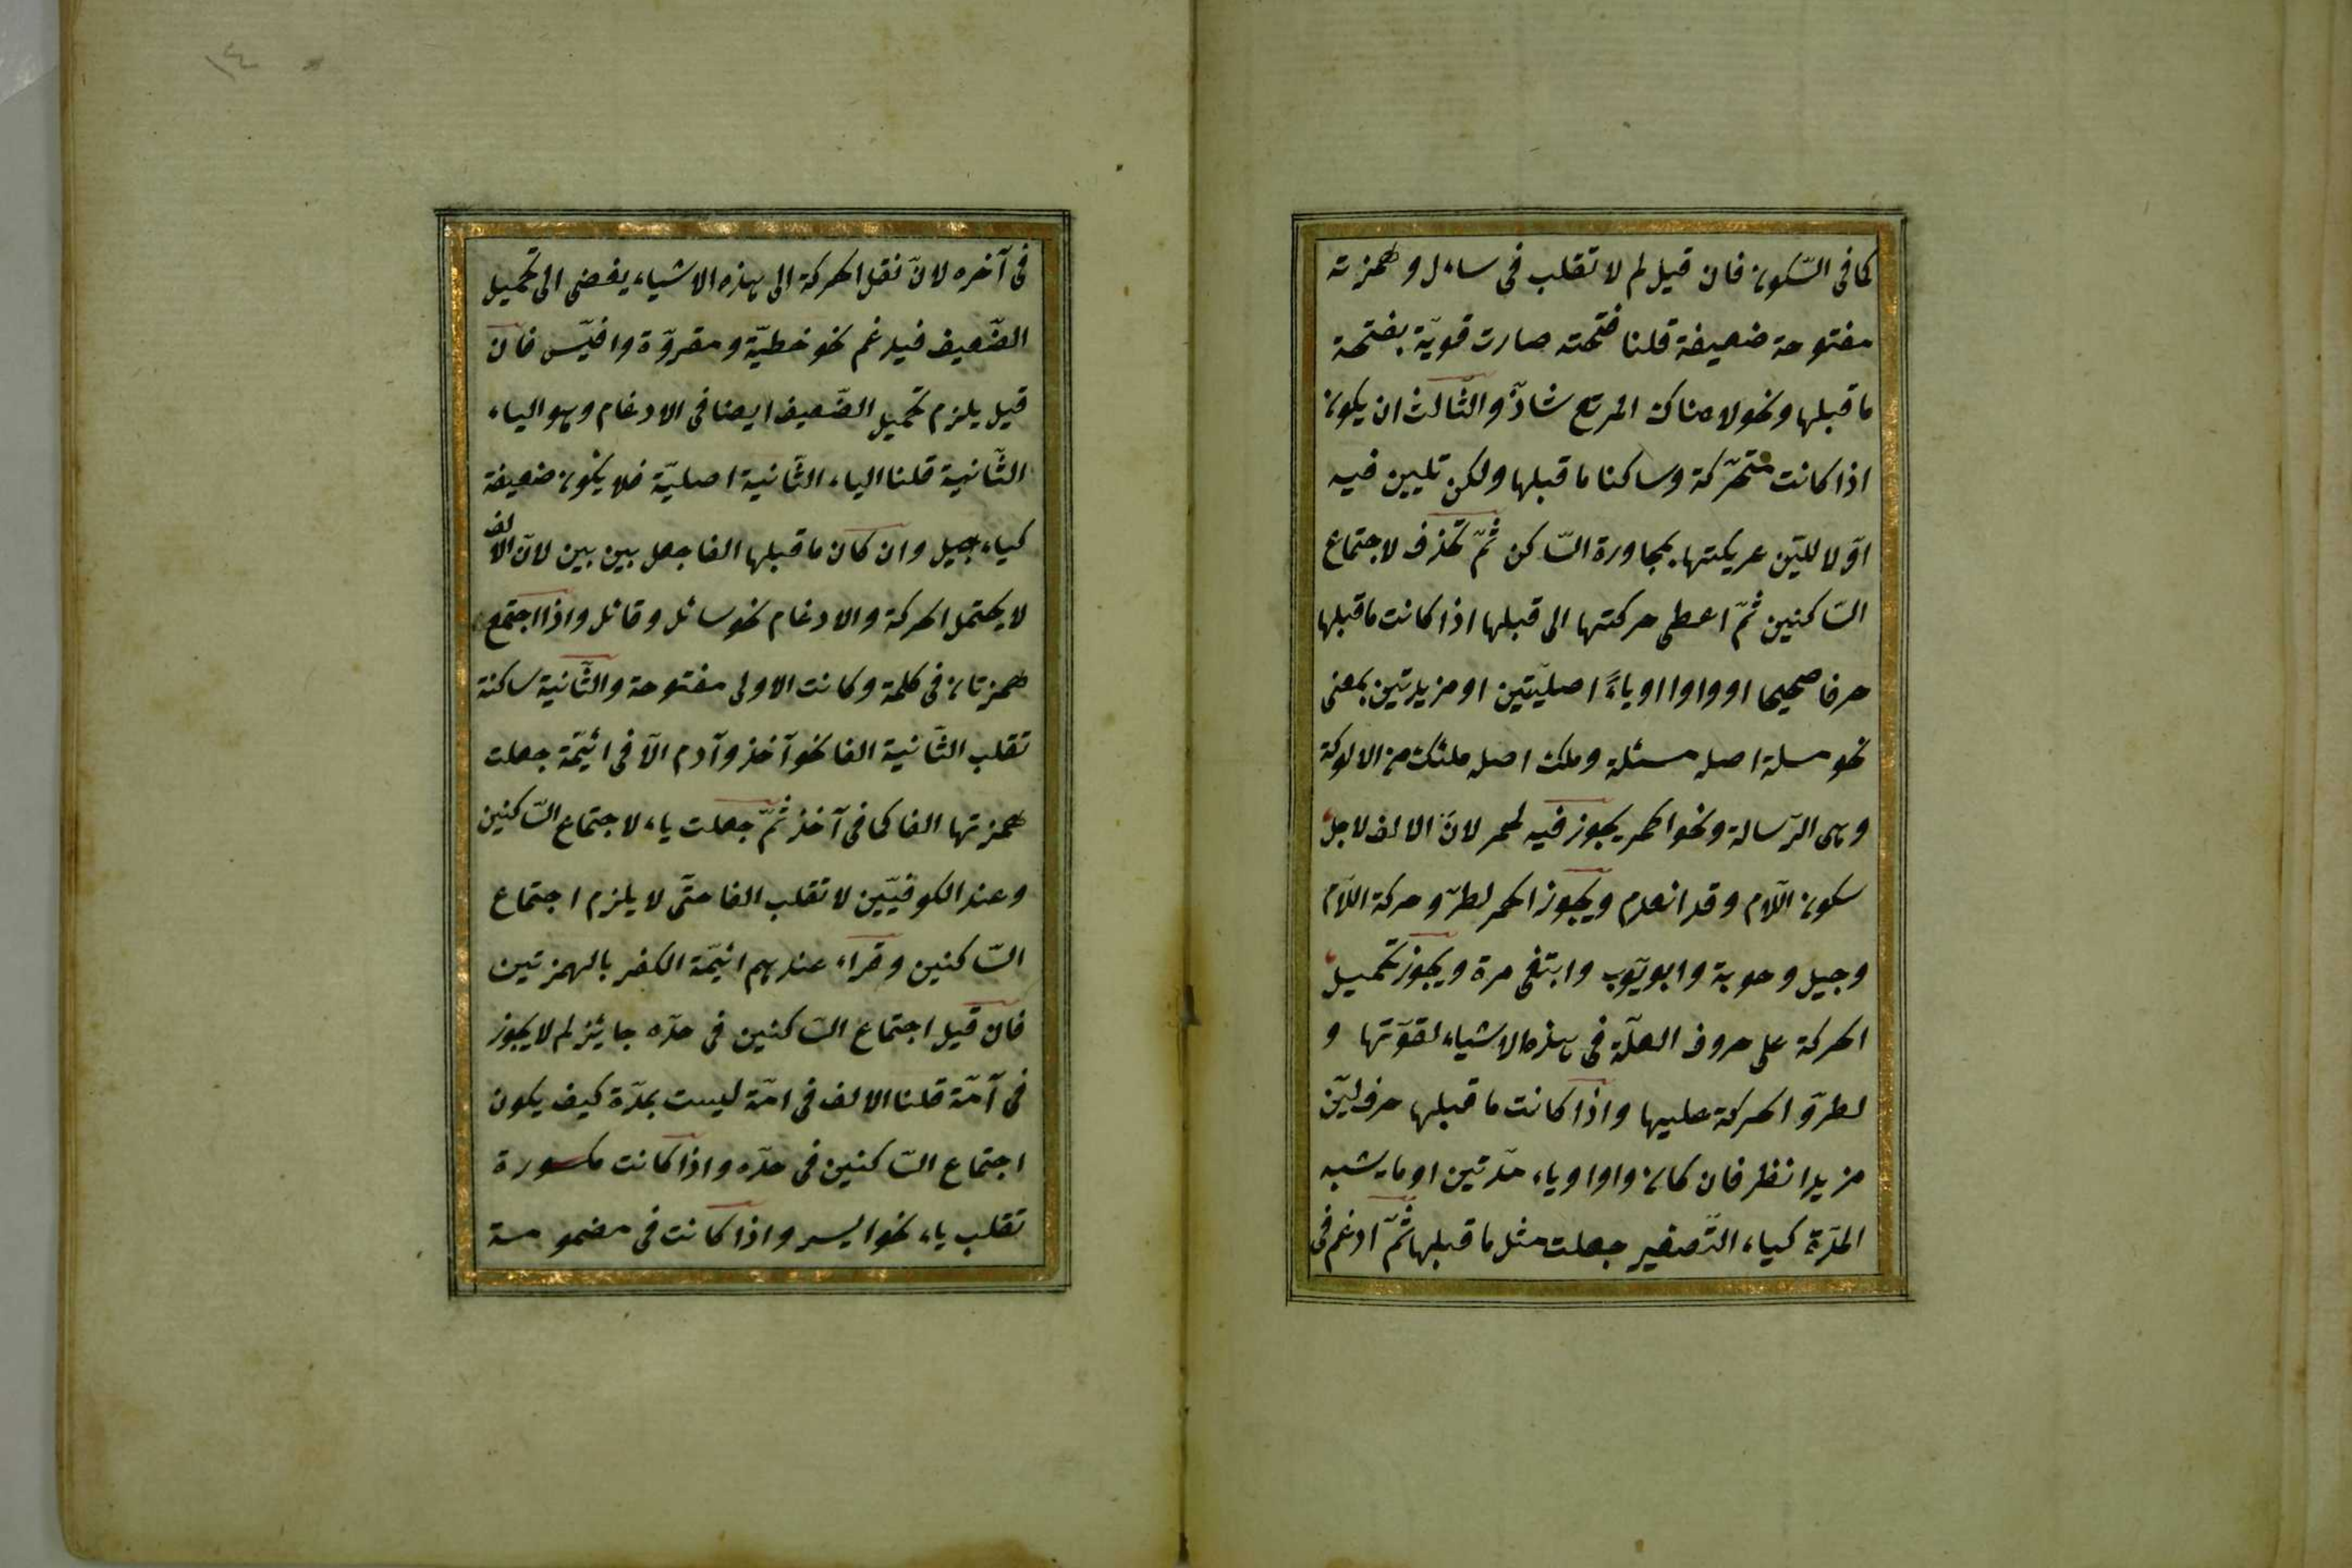 كما فى السّكون فان قيل لم لا تقلب فى ساءل وهمزته
مفتوحة ضعيفة قلنا فتحته صارت قويّة بفتحة
ما قبلها ونحو لا هناك المرتع شاذّ والثّالث ان يكون
اذا كانت متحرّكة وساكنا ما قبلها ولكن تليين فيه
اوّلا لليّن عريكتها بمجاورة السّاكن ثمّ تحذف لاجتماع
السّاكنين ثمّ اعطى حركتها الى قبلها اذا كانت ما قبلها
حرفا صحيحا او واوا او ياءً اصليّتين او مزيدتين بمعنى
نحو مسلة اصله مسئلة وملك اصله ملئك من الالوكة
وهى الرّسالة ونحو الحمر يجوز فيه لحمر لانّ الالف لاجل
سكون اللّام وقد انعدم ويجوز الحمر لطرّو حركة اللّام
وجيل وحوبة وابو يّوب وابتغى مرة ويجوز تحميل
الحركة على حروف العلّة فى هذه الاشياء لقوّتها و
لطروّ الحركة عليها واذا كانت ما قبلها حرف ليّن
مزيدا نظر فان كان واوا او ياء مدّتين او ما يشبه
المدّة كياء التّصغير جعلت مثل ما قبلها ثمّ ادغم فى
١٤
فى آخره لانّ نقل الحركة الى هذه الاشياء يفضى الى تحميل
الضّعيف فيدغم نحو خطيّة ومقروّة وافيّس فان
قيل يلزم تحميل الضّعيف ايضا فى الادغام وهو الياء
الثّانية قلنا الياء الثّانية اصليّة فلا يكون ضعيفة
كياء جيل وان كان ما قبلها الفا جعل بين بين لانّ الالف
لا يحتمل الحركة والادغام نحو سائل وقائل واذا اجتمع
همزتان فى كلمة وكانت الاولى مفتوحة والثّانية ساكنة
تقلب الثّانية الفا نحو آخذ وآدم الّا فى ائيّمة جعلت
همزتها الفا كما فى آخذ ثمّ جعلت ياء لاجتماع السّاكنين
وعند الكوفيّين لا تقلب الفا حتّى لا يلزم اجتماع
السّاكنين وقراء عندهم ائيّمة الكفر بالهمزتين
فان قيل اجتماع السّاكنين فى حدّه جائيز لم لا يجوز
فى آمّة قلنا الالف فى امّة ليست بمدّة كيف يكون
اجتماع السّاكنين فى حدّه واذا كانت مكسورة
تقلب ياء نحو ايسر واذا كانت فى مضمومة